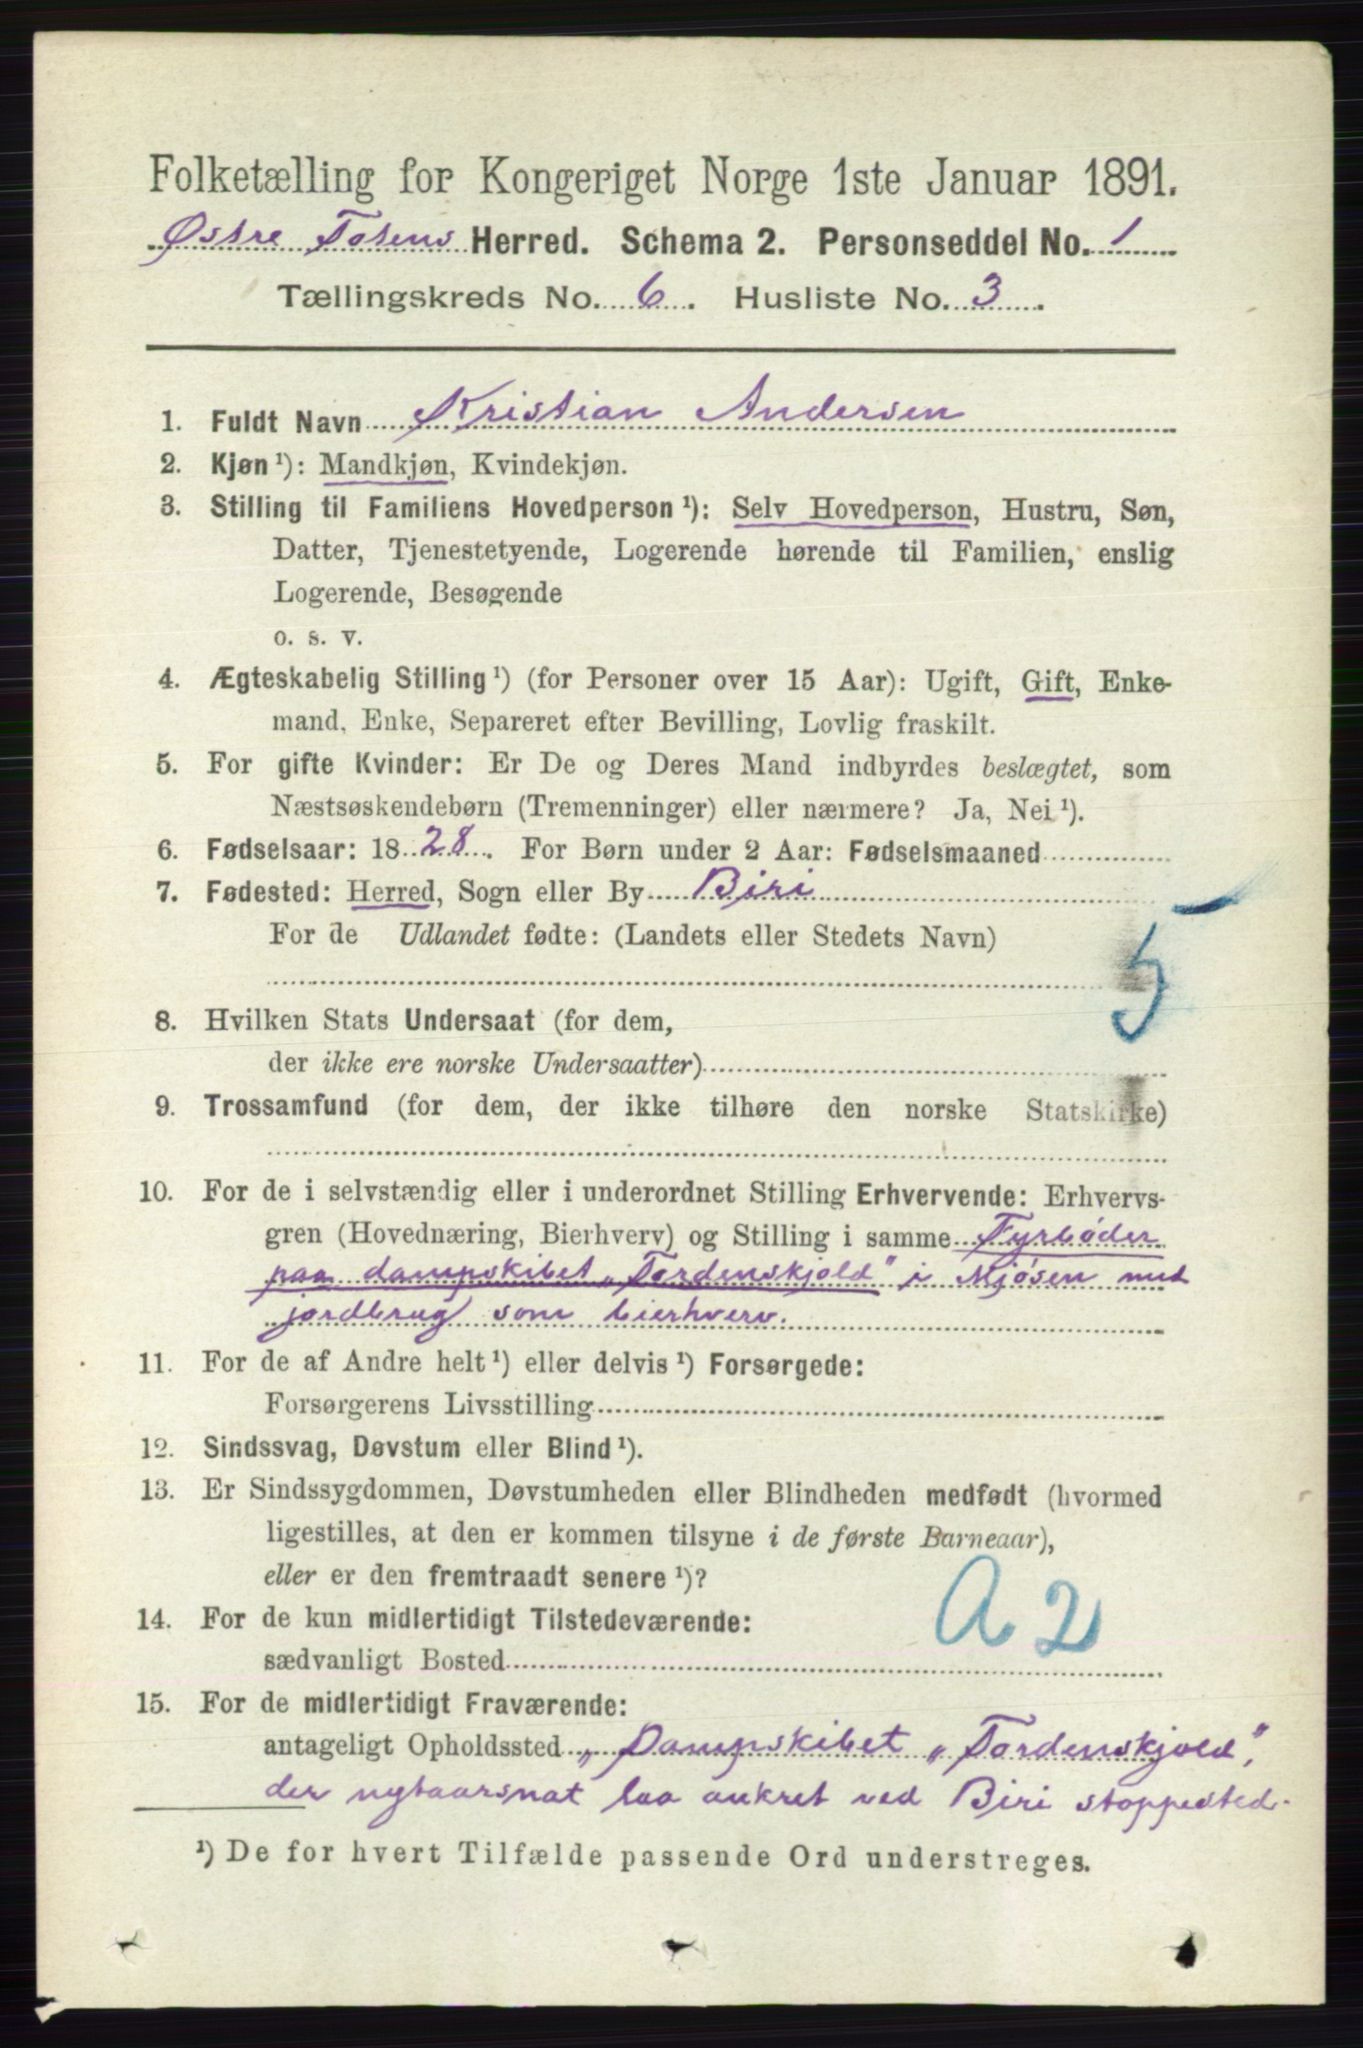 Folketælling for Kongeriget Norge 1ste Januar 1891.
Østre Totens Herred. Schema 2. Personseddel No. 1
Tællingskreds No. 6. Husliste No. 3.
1. Fuldt Navn Kristian Andersen
2. Kjøn ¹): Mandkjøn, Kvindekjøn.
3. Stilling til Familiens Hovedperson ¹): Selv Hovedperson, Hustru, Søn,
Datter, Tjenestetyende, Logerende hørende til Familien, enslig
Logerende, Besøgende
o. s. v.
4. Ægteskabelig Stilling ¹) (for Personer over 15 Aar): Ugift, Gift, Enke-
mand, Enke, Separeret efter Bevilling, Lovlig fraskilt.
5. For gifte Kvinder: Er De og Deres Mand indbyrdes beslægtet, som
Næstsøskendebørn (Tremenninger) eller nærmere? Ja, Nei ¹).
6. Fødselsaar: 1828. For Børn under 2 Aar: Fødselsmaaned
7. Fødested: Herred, Sogn eller By Biri
For de Udlandet fødte: (Landets eller Stedets Navn)
5
8. Hvilken Stats Undersaat (for dem,
der ikke ere norske Undersaatter)
9. Trossamfund (for dem, der ikke tilhøre den norske Statskirke)
10. For de i selvstændig eller i underordnet Stilling Erhvervende: Erhvervs-
gren (Hovednæring, Bierhverv) og Stilling i samme Fyrbøder
paa dampskibet „Tordenskjold" i Mjøsen med
jordbrug som bierhverv.
11. For de af Andre helt ¹) eller delvis ¹) Forsørgede:
Forsørgerens Livsstilling
12. Sindssvag, Døvstum eller Blind ¹).
13. Er Sindssygdommen, Døvstumheden eller Blindheden medfødt (hvormed
ligestilles, at den er kommen tilsyne i de første Barneaar),
eller er den fremtraadt senere ¹)?
A 2
14. For de kun midlertidigt Tilstedeværende:
sædvanligt Bosted
15. For de midlertidigt Fraværende:
antageligt Opholdssted „Dampskibet „Tordenskjold",
der nytaarsnat laa ankret ved Biri stoppested.
¹) De for hvert Tilfælde passende Ord understreges.